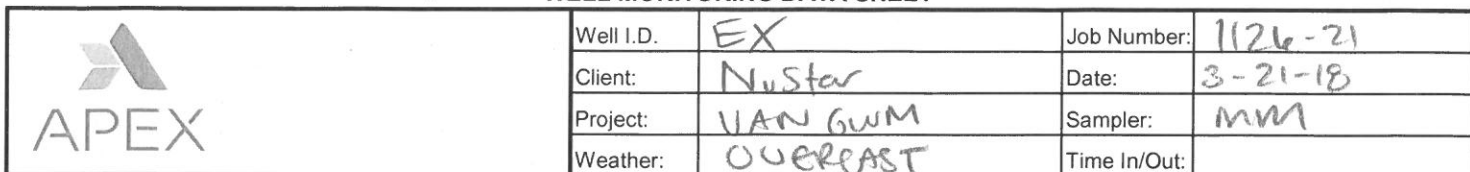 APEX
Well I.D. EX Job Number: 1126-21
Client: NuStar Date: 3-21-18
Project: VAN GWM Sampler: MM
Weather: OVERCAST Time In/Out: